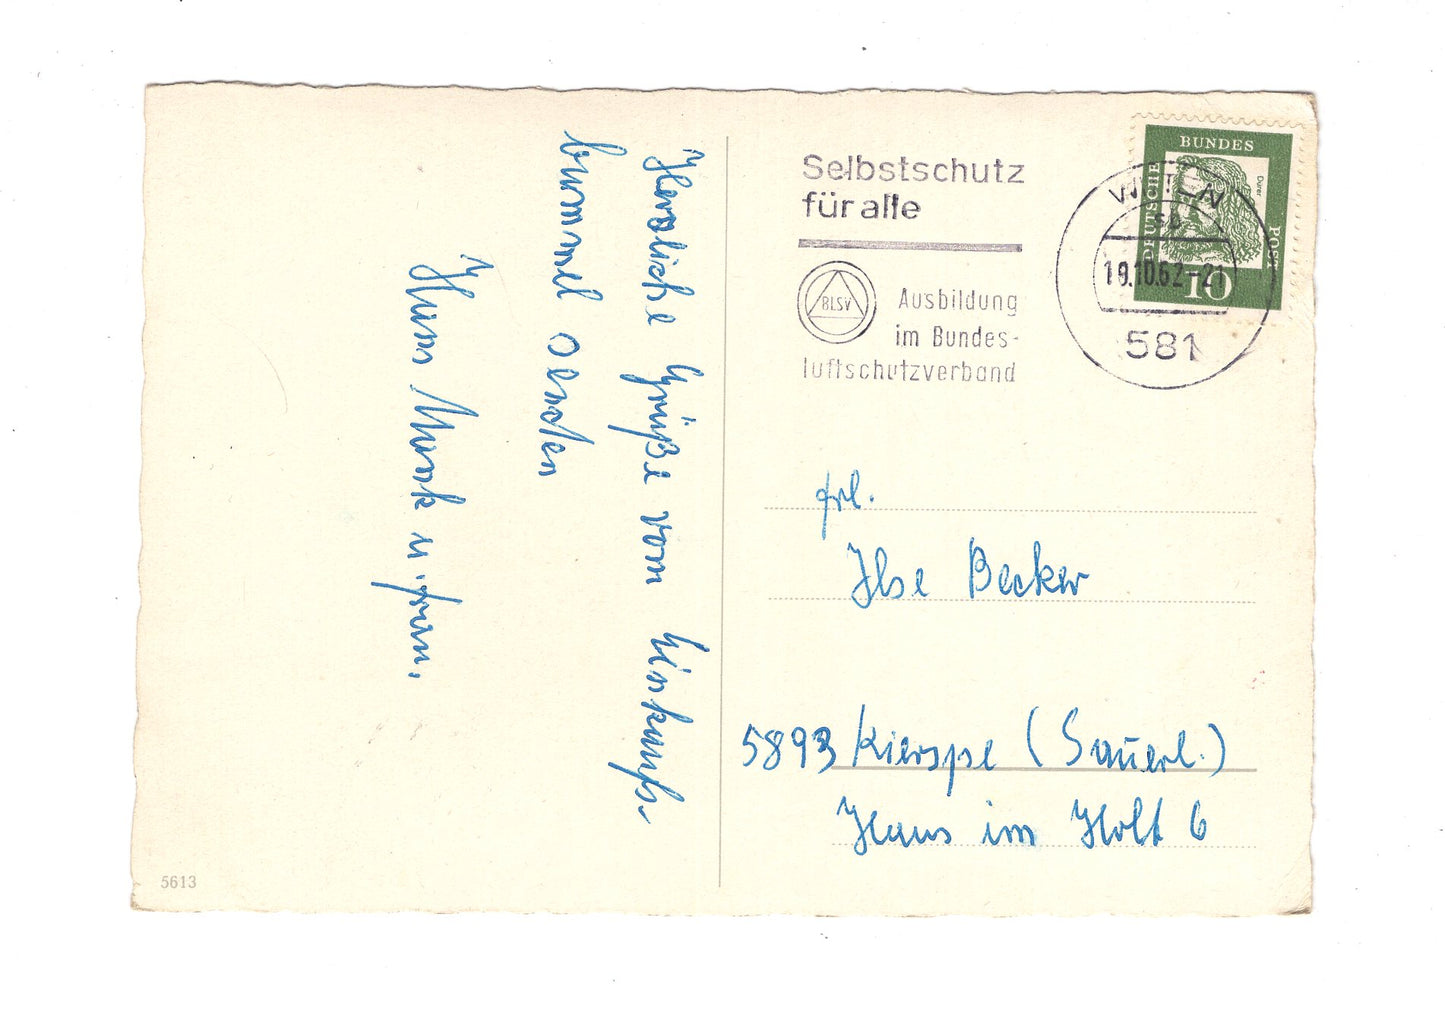 Herzliche Grüße vom Einkaufs-
bummel senden
Hans Munk u. Frau.
Selbstschutz
für alle
BLSV
Ausbildung
im Bundes-
luftschutzverband
WITTEN
581
DEUTSCHE
BUNDES
POST
Dürer
10
Frl.
Ilse Becker
5893 Kierspe (Sauerl.)
Haus im Holt 6
5613